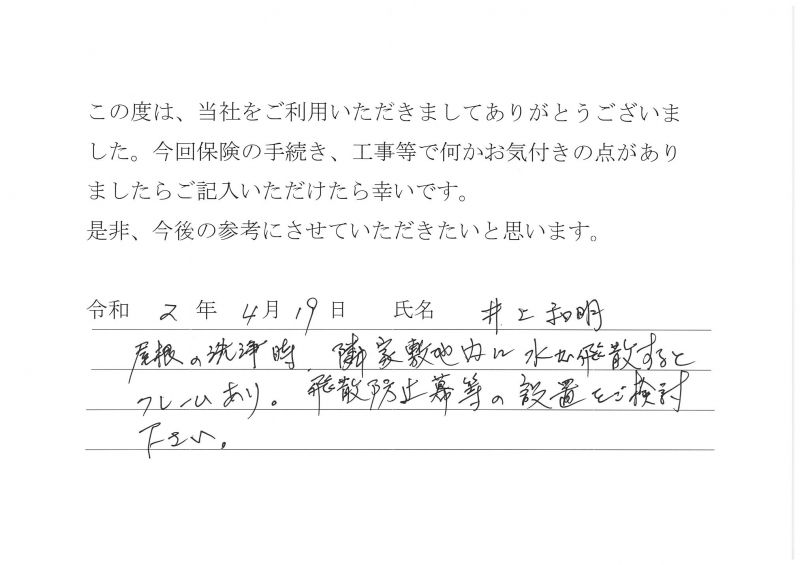 この度は、当社をご利用いただきましてありがとうございま
した。今回保険の手続き、工事等で何かお気付きの点があり
ましたらご記入いただけたら幸いです。
是非、今後の参考にさせていただきたいと思います。
令和 2 年 4月19日 氏名 井上和明
屋根の洗浄時 隣家敷地内に水が飛散すると
クレームあり。飛散防止幕等の設置をご検討
下さい。